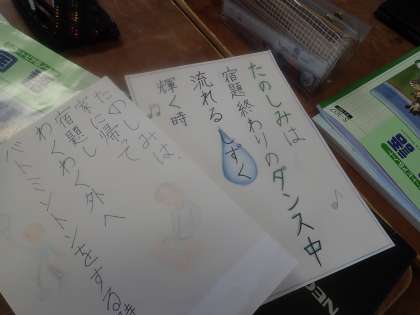 たのしみは
宿題終わりのダンス中
流れるしずく
輝く時
たのしみは
家に帰って
宿題し
わくわく外へ
バトミントンをする時